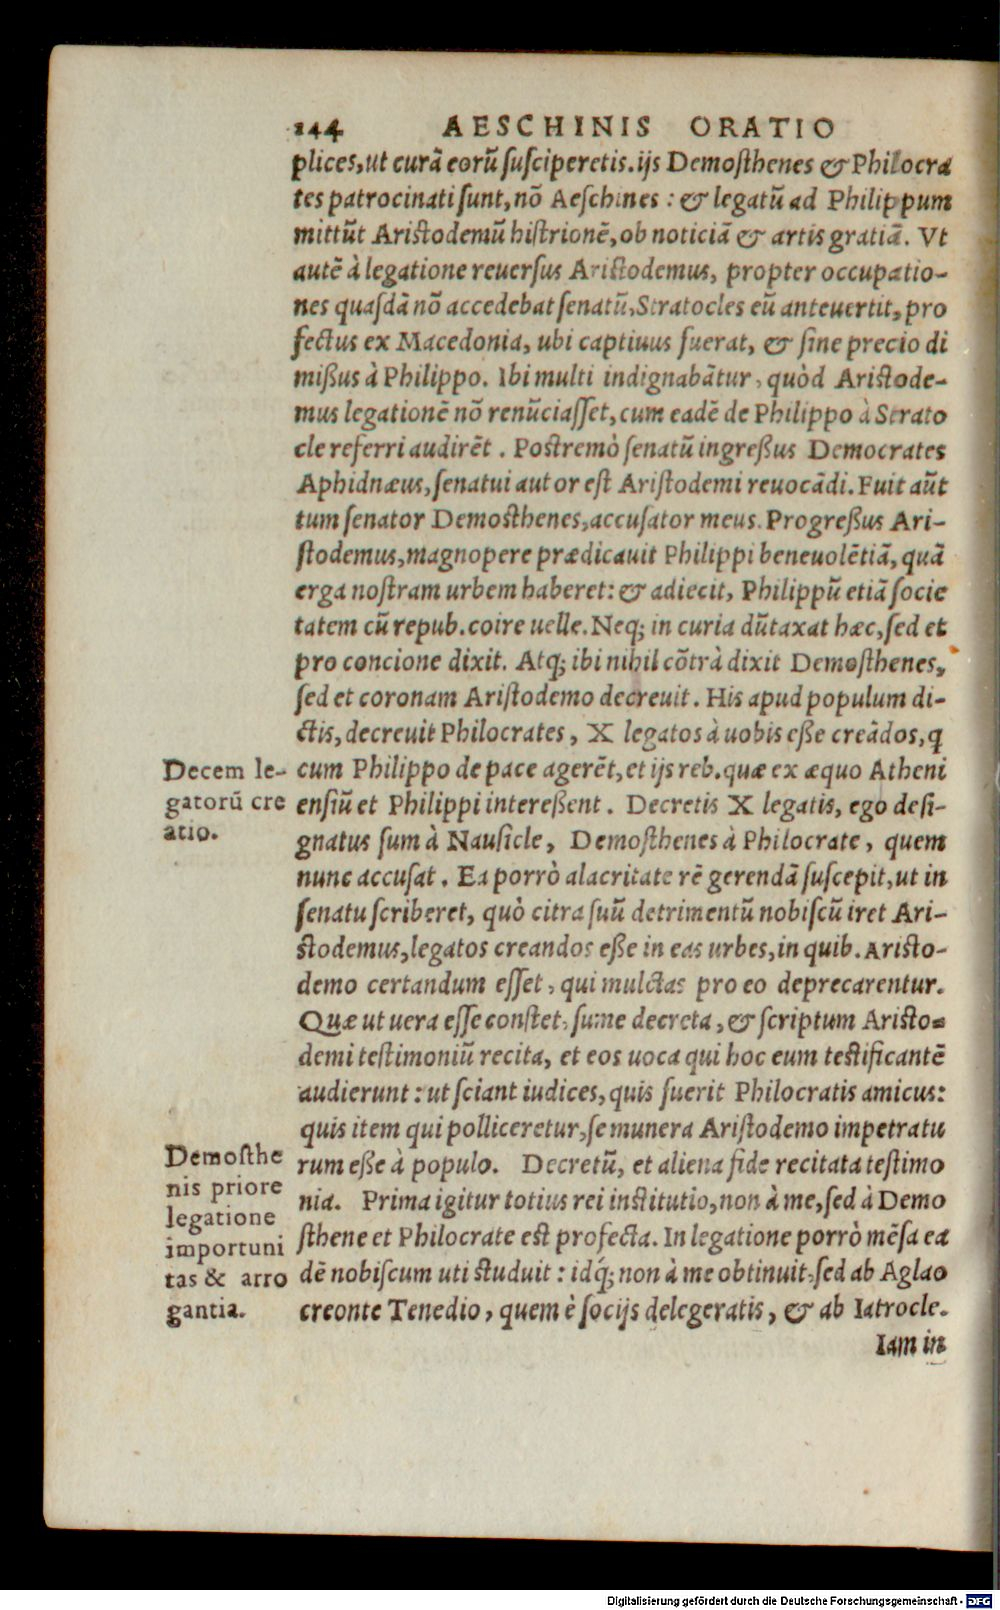 144 AESCHINIS ORATIO
plices, ut curā eorū ſuſciperetis. ijs Demoſthenes & Philocra
tes patrocinati ſunt, nō Aeſchines: & legatū ad Philippum
mittūt Ariſtodemū hiſtrionē, ob noticiā & artis gratiā. Vt
autē à legatione reuerſus Ariſtodemus, propter occupatio-
nes quaſdā nō accedebat ſenatū, Stratocles eū anteuertit, pro
fectus ex Macedonia, ubi captiuus fuerat, & ſine precio di
mißus à Philippo. Ibi multi indignabātur, quòd Ariſtode-
mus legationē nō renūciaſſet, cum eadē de Philippo à Strato
cle referri audirēt. Poſtremò ſenatū ingreßus Democrates
Aphidnæus, ſenatui autor eſt Ariſtodemi reuocādi. Fuit aūt
tum ſenator Demoſthenes, accuſator meus. Progreßus Ari-
ſtodemus, magnopere prædicauit Philippi beneuolētiā, quā
erga noſtram urbem haberet: & adiecit, Philippū etiā ſocie
tatem cū repub. coire uelle. Neq; in curia dūtaxat hæc, ſed et
pro concione dixit. Atq; ibi nihil cōtrà dixit Demoſthenes,
ſed et coronam Ariſtodemo decreuit. His apud populum di-
ctis, decreuit Philocrates, X legatos à uobis eße creādos, q
Decem le-
gatorū cre
atio.
cum Philippo de pace agerēt, et ijs reb. quæ ex æquo Atheni
enſiū et Philippi intereßent. Decretis X legatis, ego deſi-
gnatus ſum à Nauſicle, Demoſthenes à Philocrate, quem
nunc accuſat. Ea porrò alacritate rē gerendā ſuſcepit, ut in
ſenatu ſcriberet, quò citra ſuū detrimentū nobiſcū iret Ari-
ſtodemus, legatos creandos eße in eas urbes, in quib. Ariſto-
demo certandum eſſet, qui mulctas pro eo deprecarentur.
Quæ ut uera eſſe conſtet, ſume decreta, & ſcriptum Ariſto-
demi teſtimoniū recita, et eos uoca qui hoc eum teſtificantē
audierunt: ut ſciant iudices, quis fuerit Philocratis amicus:
quis item qui polliceretur, ſe munera Ariſtodemo impetratu
Demoſthe
nis priore
legatione
importuni
tas & arro
gantia.
rum eße à populo. Decretū, et aliena fide recitata teſtimo
nia. Prima igitur totius rei inſtitutio, non à me, ſed à Demo
ſthene et Philocrate eſt profecta. In legatione porrò mēſa ea
dē nobiſcum uti ſtuduit: idq; non à me obtinuit, ſed ab Aglao
creonte Tenedio, quem è ſocijs delegeratis, & ab Iatrocle.
Iam in
Digitalisierung gefördert durch die Deutsche Forschungsgemeinschaft - DFG